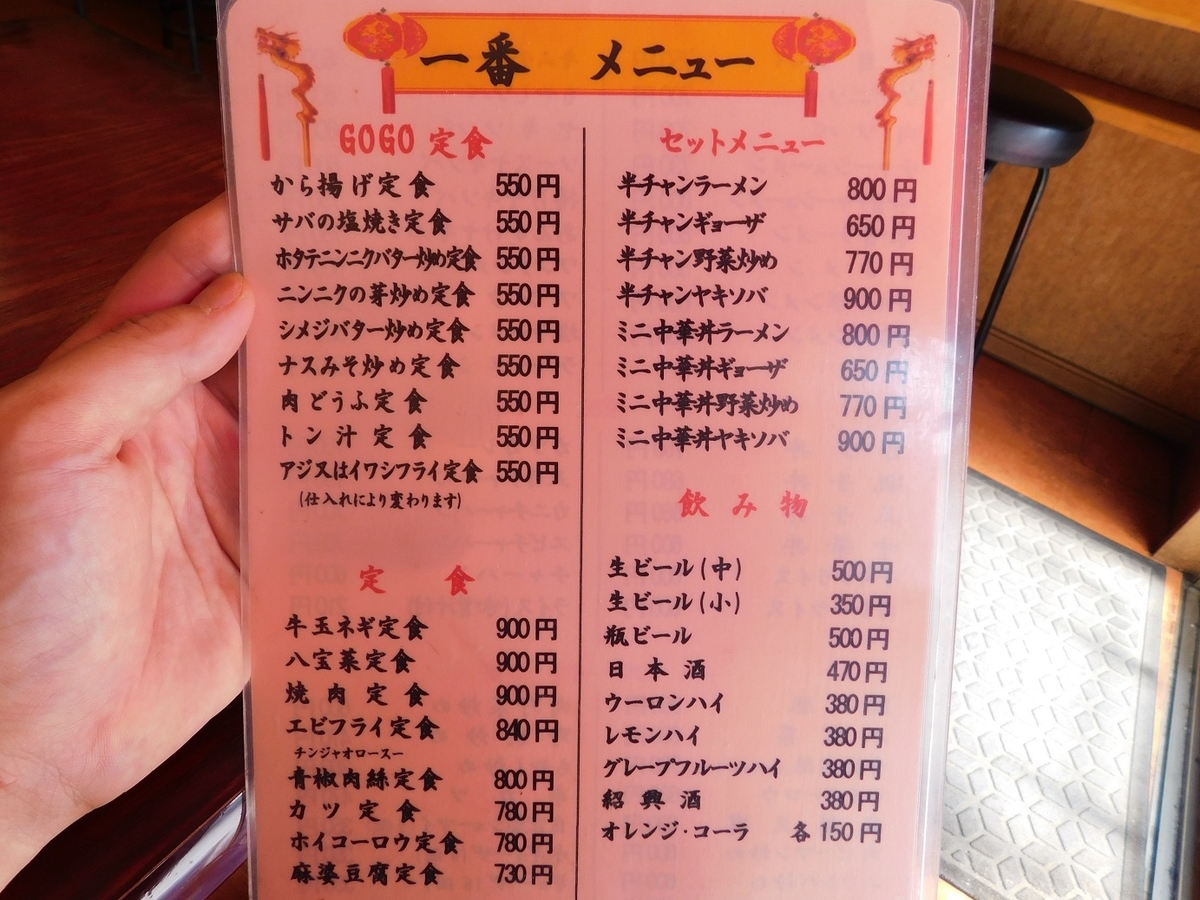 一番 メニュー
GOGO 定食
から揚げ定食 550円
サバの塩焼き定食 550円
ホタテニンニクバター炒め定食 550円
ニンニクの芽炒め定食 550円
シメジバター炒め定食 550円
ナスみそ炒め定食 550円
肉どうふ定食 550円
トン汁定食 550円
アジ又はイワシフライ定食 550円
(仕入れにより変わります)
定食
牛玉ネギ定食 900円
八宝菜定食 900円
焼肉定食 900円
エビフライ定食 840円
チンジャオロースー
青椒肉絲定食 800円
カツ定食 780円
ホイコーロウ定食 780円
麻婆豆腐定食 730円
セットメニュー
半チャンラーメン 800円
半チャンギョーザ 650円
半チャン野菜炒め 770円
半チャンヤキソバ 900円
ミニ中華丼ラーメン 800円
ミニ中華丼ギョーザ 650円
ミニ中華丼野菜炒め 770円
ミニ中華丼ヤキソバ 900円
飲み物
生ビール(中) 500円
生ビール(小) 350円
瓶ビール 500円
日本酒 470円
ウーロンハイ 380円
レモンハイ 380円
グレープフルーツハイ 380円
紹興酒 380円
オレンジ・コーラ 各150円